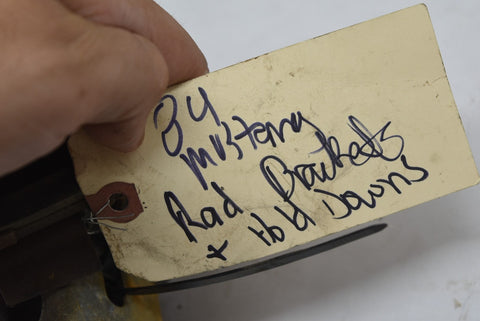 84
Mustang
Rad Brackets
+ Hold Downs